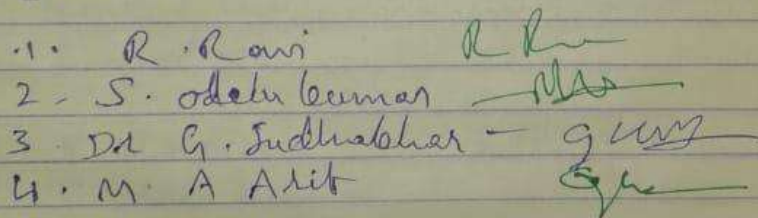 1. R. Ravi
2 - S. odelu kumar
3. Dr G. Sudhakhar -
4. M. A Arif